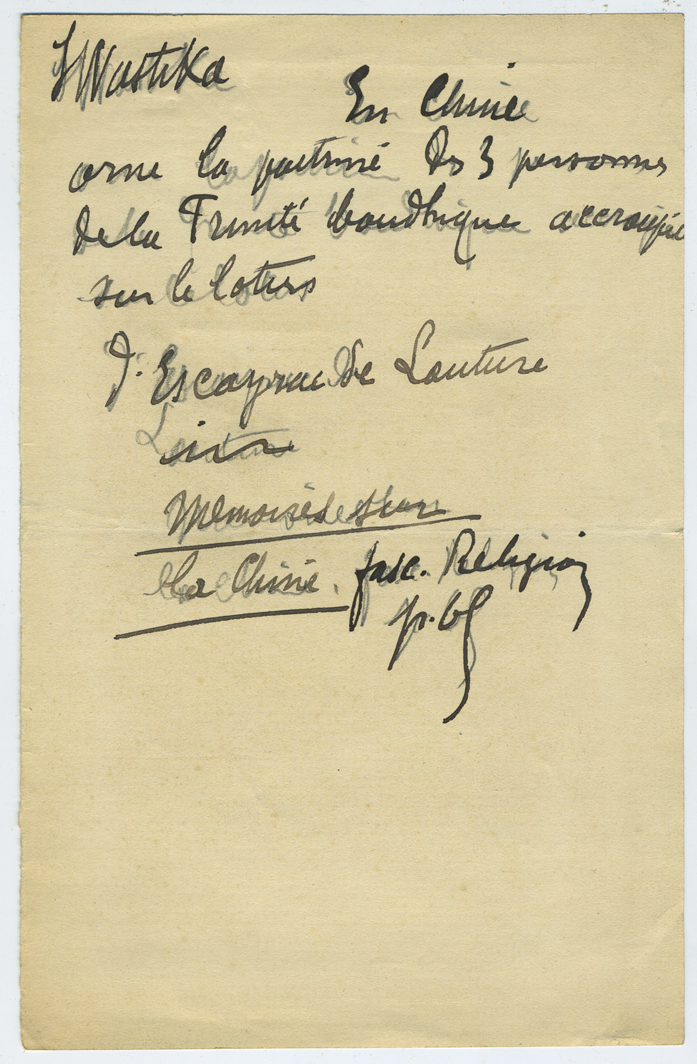 Swastika
En Chine
orne la poitrine des 3 personnes
de la Trinité bouddhique accroupie
sur le lotus
d'Escayrac de Lauture
Mémoires sur
la Chine. fasc. Religion
p.